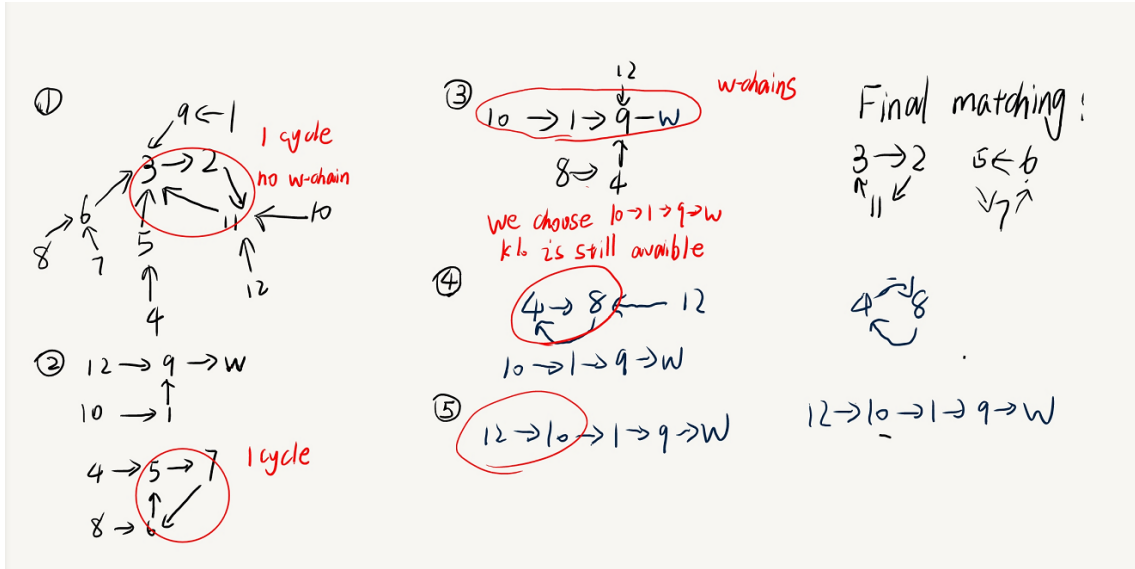 ①
9←1
1 cycle
3→2
no w-chain
6
11←10
8
7
5
12
4
② 12→9→W
10→1
4→5→7
1 cycle
8→6
③
12
w-chains
10→1→9-W
8→4
we choose 10→1→9→W
k10 is still avaible
④
4→8←12
10→1→9→W
⑤
12→10→1→9→W
Final matching:
3→2
11
5←6
7
4 8
12→10→1→9→W